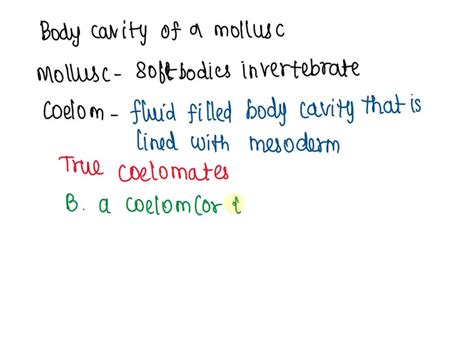 Body cavity of a mollusc
Mollusc - Soft bodies invertebrate
Coelom - fluid filled body cavity that is
lined with mesoderm
True coelomates
B. a coelom (or